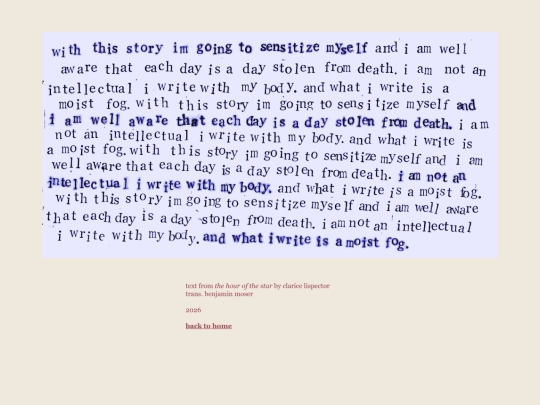 with this story im going to sensitize myself and i am well
aware that each day is a day stolen from death. i am not an
intellectual i write with my body. and what i write is a
moist fog. with this story im going to sensitize myself and
i am well aware that each day is a day stolen from death. i am
not an intellectual i write with my body. and what i write is
a moist fog. with this story im going to sensitize myself and i am
well aware that each day is a day stolen from death. i am not an
intellectual i write with my body. and what i write is a moist fog.
with this story im going to sensitize myself and i am well aware
that each day is a day stolen from death. i am not an intellectual
i write with my body. and what i write is a moist fog.
text from the hour of the star by clarice lispector
trans. benjamin moser
2026
back to home